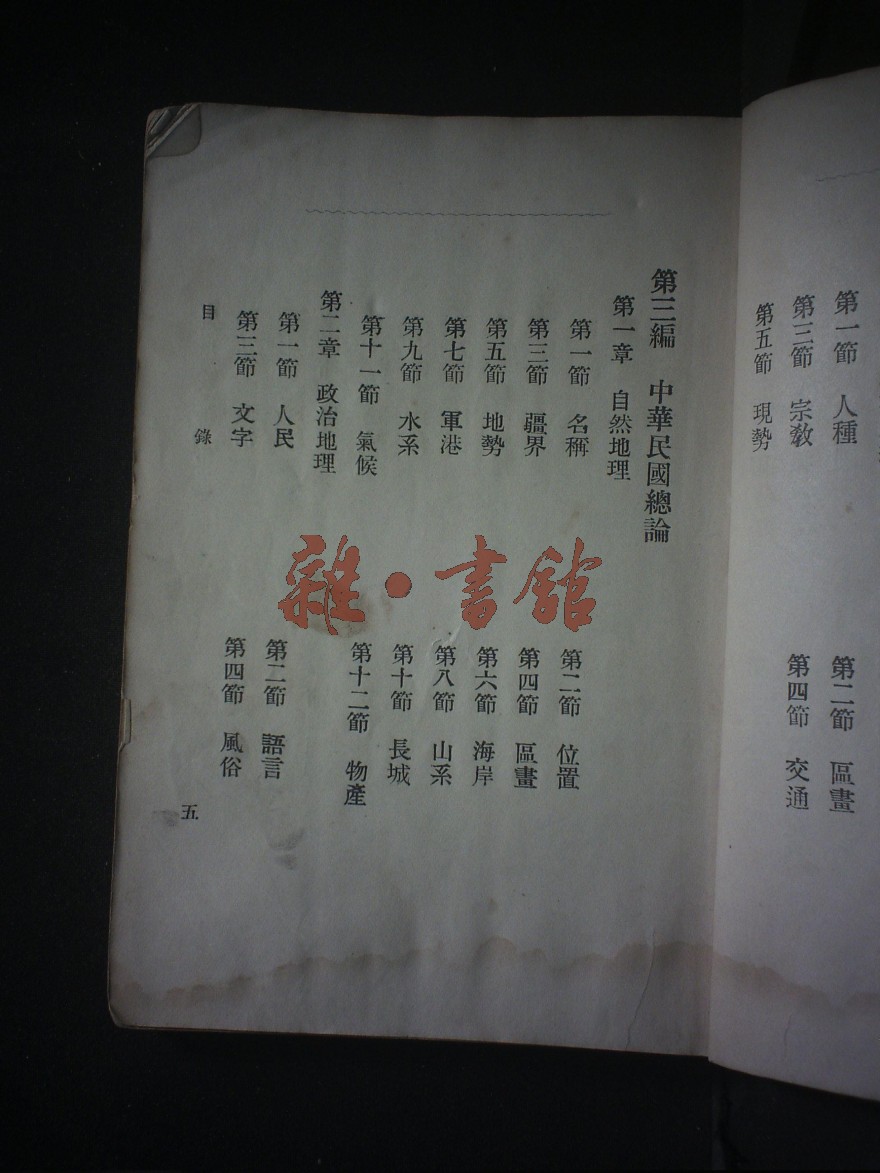 第一節 人種
第二節 區畫
第三節 宗敎
第四節 交通
第五節 現勢
第三編 中華民國總論
第一章 自然地理
第一節 名稱
第二節 位置
第三節 疆界
第四節 區畫
第五節 地勢
第六節 海岸
第七節 軍港
第八節 山系
第九節 水系
第十節 長城
第十一節 氣候
第十二節 物產
第二章 政治地理
第一節 人民
第二節 語言
第三節 文字
第四節 風俗
目 錄
五
雜·書館